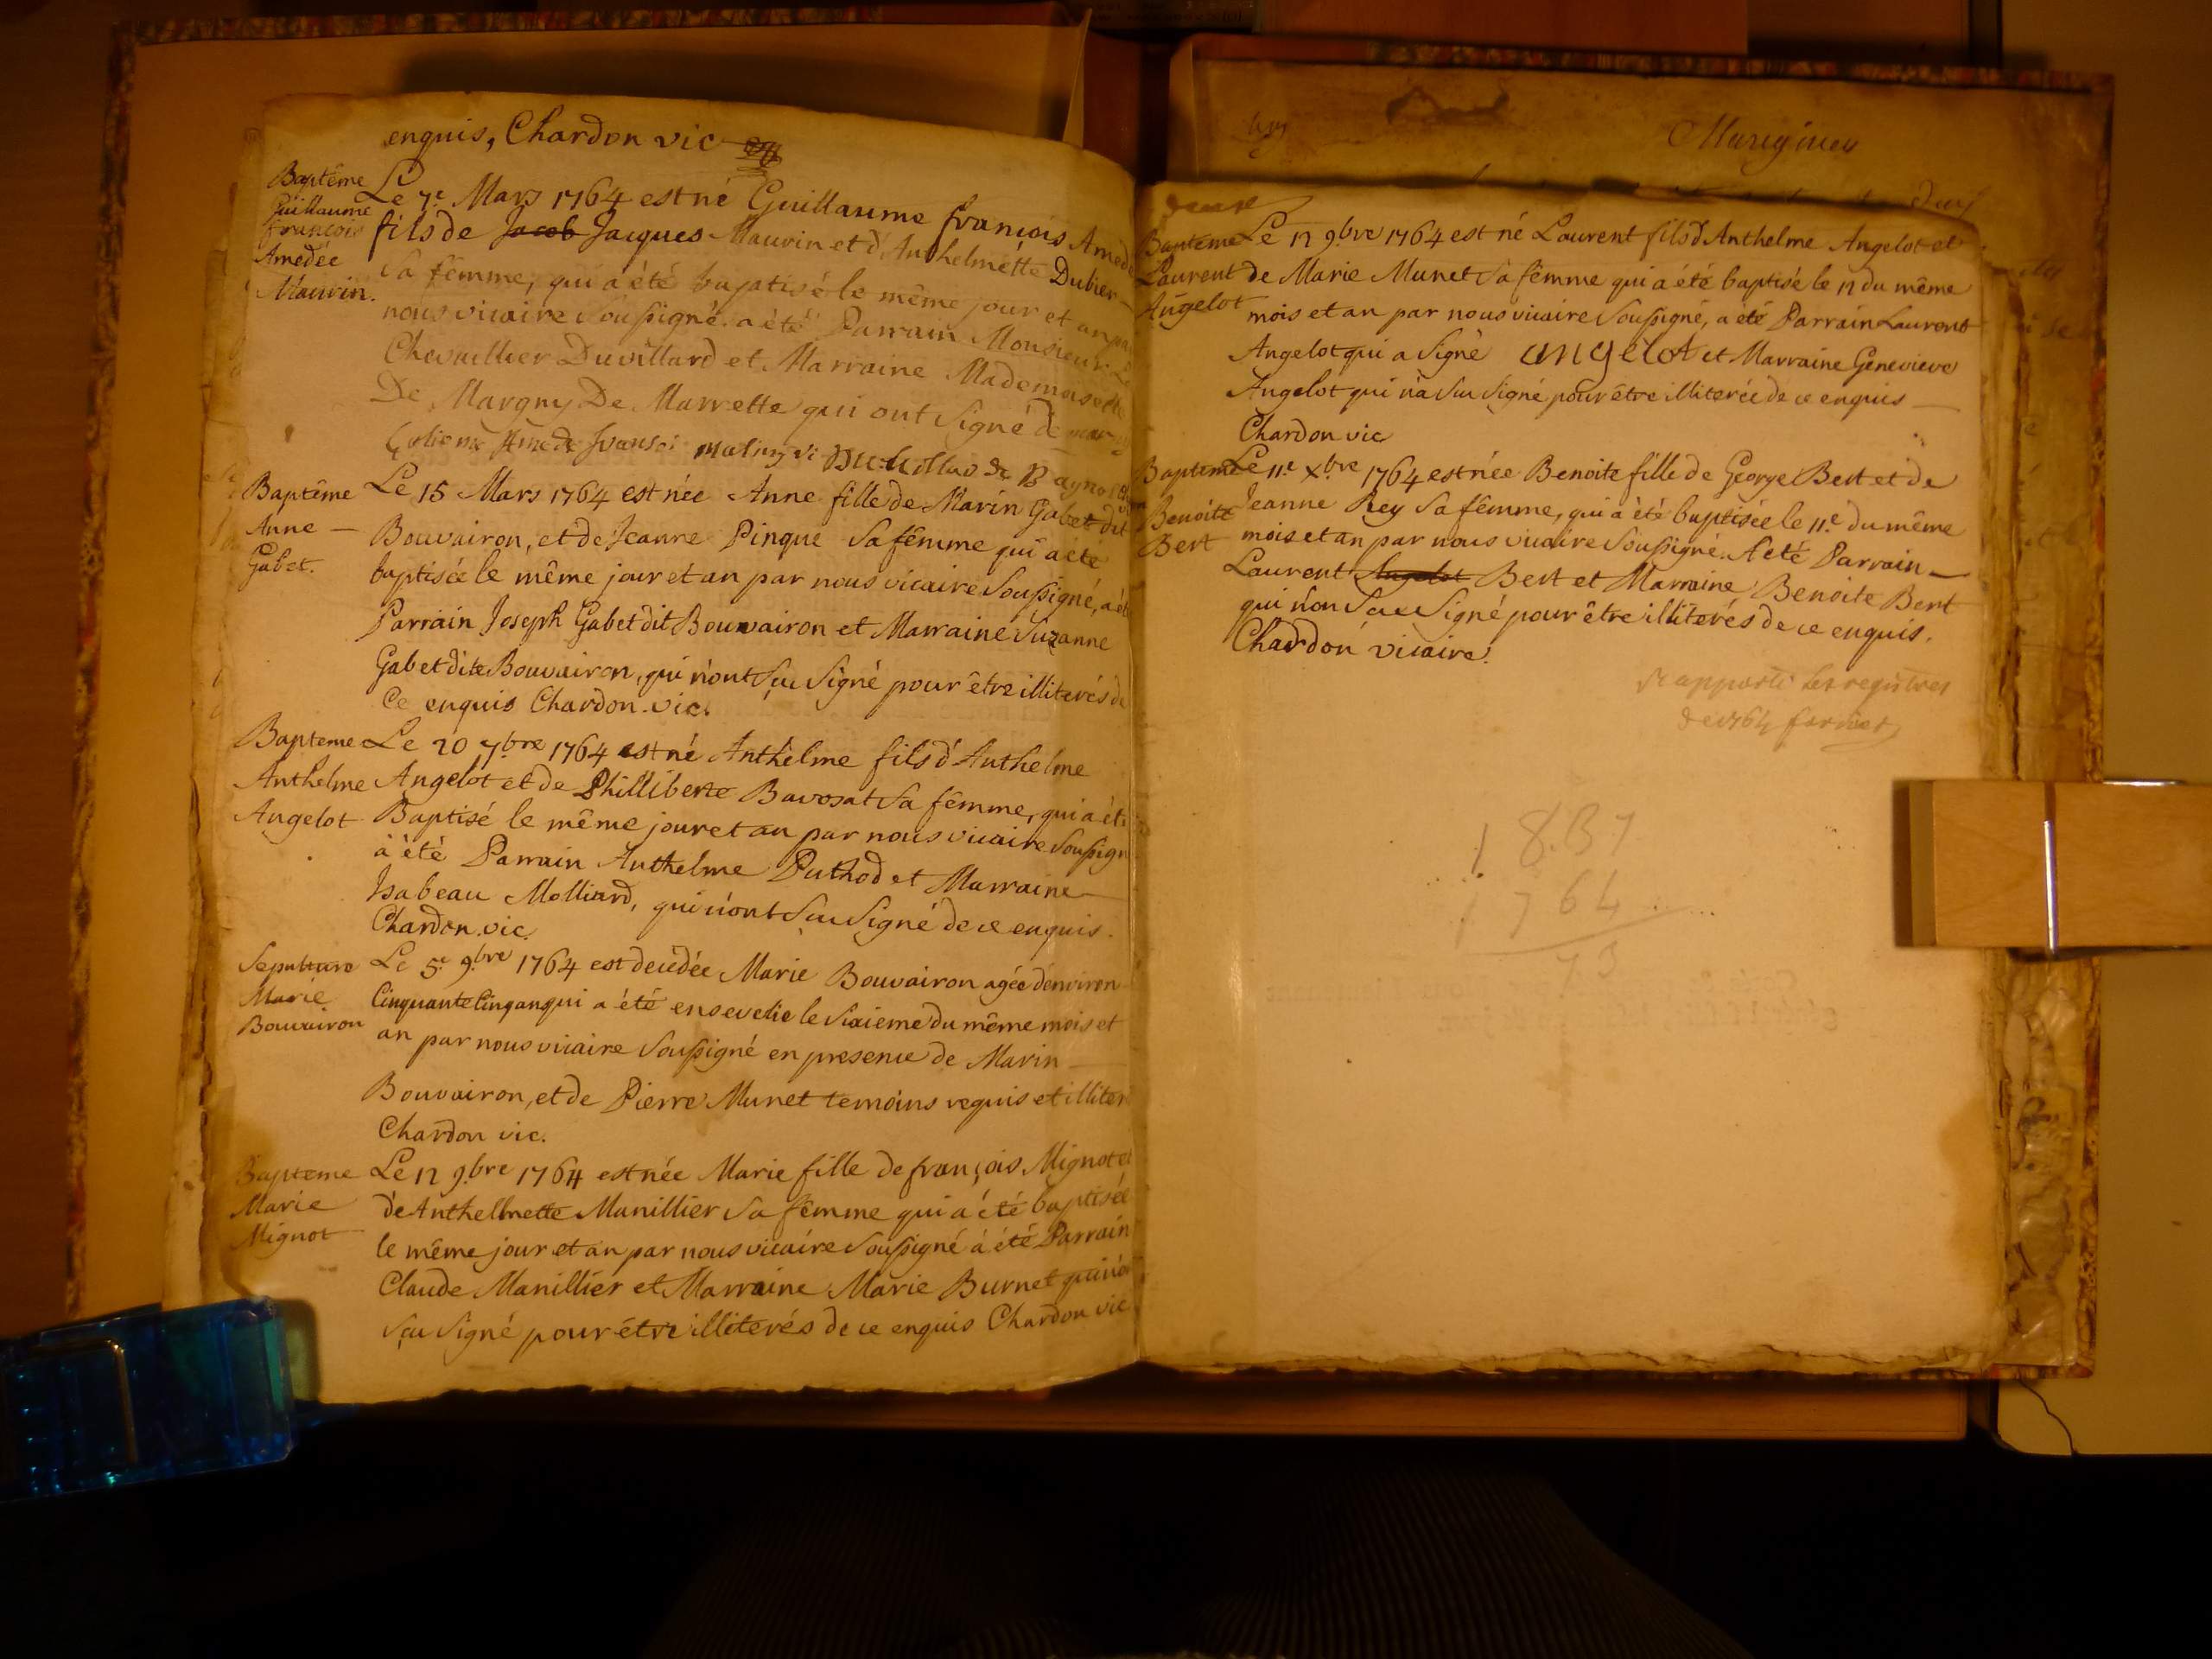 enquis, Chardon vic
Baptême
Guillaume
françois
Amedée
Mauvin.
Le 7e. Mars 1764 est né Guillaume francois Amedé
fils de Jacob Jacques Mauvin et d'Anthelmétte Dubier
sa fême, qui a été baptisé le même jour et an par
nous vicaire soussigné. a été Parrain Monsieur Le
Chevallier Duvillard et Marraine Mademoiselle
De Margny De Marrette qui ont signé
Baptême
Anne
Gabet.
Le 15 Mars 1764 est née Anne fille de Marin Gabet dit
Bouvairon, et de Jeanne Pinque sa fême qui a été
baptisée le même jour et an par nous vicaire soussigné, a été
Parrain Joseph Gabet dit Bouvairon et Marraine Suzanne
Gabet dite Bouvairon, qui n'ont sçu signé pour être illiterés de
Ce enquis Chardon. vic.
Bapteme
Anthelme
Angelot
Le 20 7.bre 1764 est né Anthelme fils d'Anthelme
Angelot et de Philliberte Bavosat sa fême, qui a été
Baptisé le même jour et an par nous vicaire soussigné
à été Parrain Anthelme Puthod et Marraine
Isabeau Molliard, qui n'ont sçu signé de ce enquis.
Chardon. vic.
Sepulture
Marie
Bouvairon
Le 5e. 9.bre 1764 est decédée Marie Bouvairon agée d'environ
Cinquante Cinq ans qui a été ensevelie le sixieme du même mois et
an par nous vicaire soussigné en presence de Marin
Bouvairon, et de Pierre Munet temoins requis et illiterés
Chardon vic.
Bapteme
Marie
Mignot
Le 12 9.bre 1764 est née Marie fille de françois Mignot et
de Anthelmette Manillier sa fême qui a été baptisée
le même jour et an par nous vicaire soussigné à été Parrain
Claude Manillier et Marraine Marie Burnet qui n'ont
sçu signé pour être illiterés de ce enquis Chardon vic
Marignieu
Bapteme
Laurent
Angelot
Le 12 9.bre 1764 est né Laurent fils d'Anthelme Angelot et
de Marie Munet sa fême qui a été baptisé le 12 du même
mois et an par nous vicaire soussigné, a été Parrain Laurent
Angelot qui a signé angelot et Marraine Genevieve
Angelot qui n'a sçu signé pour être illiterée de ce enquis
Chardon vic
Bapteme
Benoite
Bert
Le 11e X.bre 1764 est née Benoite fille de George Bert et de
Jeanne Rey sa fême, qui a été baptisée le 11e du même
mois et an par nous vicaire soussigné. A été Parrain
Laurent Angelot Bert et Marraine Benoite Bert
qui n'on sçu signé pour être illiterés de ce enquis.
Chardon vicaire.
rapporté les registres
de 1764
1837
1764
73